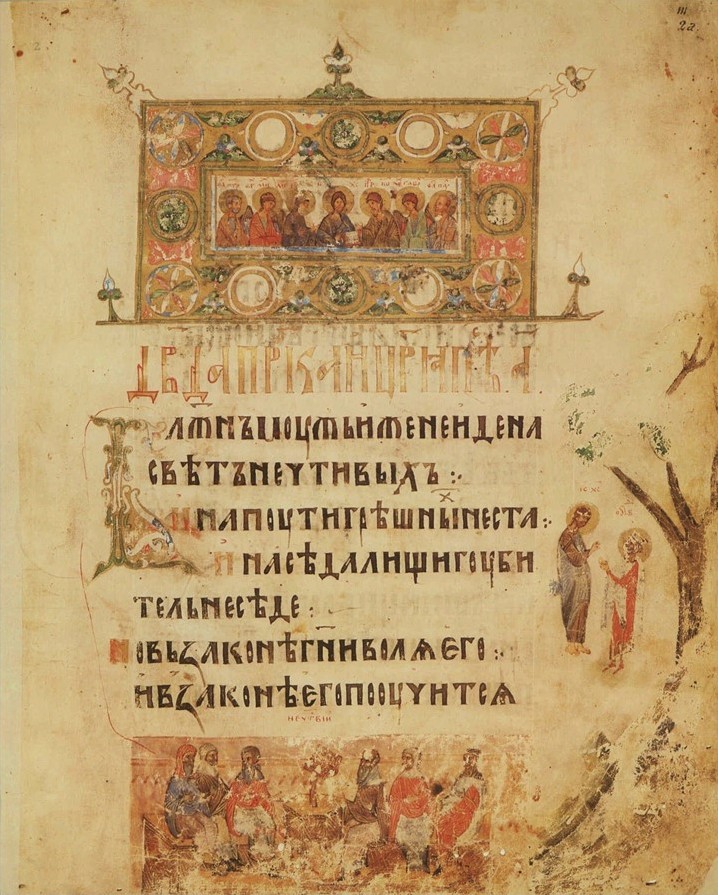 ДВ҃ДА ПРР҇КА И ЦР҃Ѧ ПѢ҇ А
Бл҃жнъ моужь иже не иде на
свѣтъ нечтивыхъ :·
И на поути грѣшныⷯ не ста :·
И на сѣдалищи гоуби
тель не сѣде :
Но вь законѣ гн҃и волѧ его :·
и в законѣ его пооучитсѧ
ІС ХС